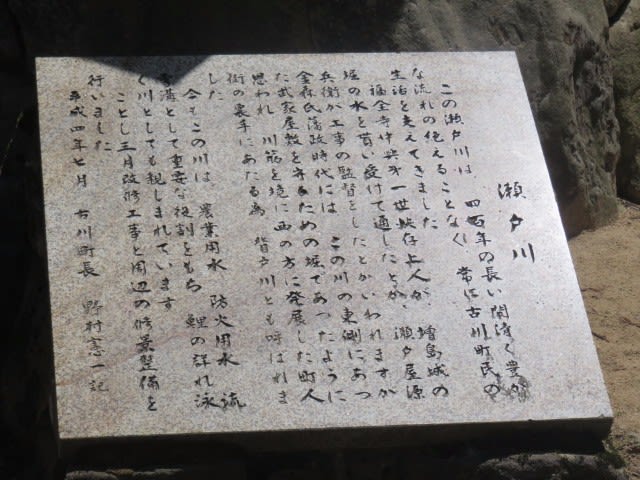 瀬戸川
この瀬戸川は 四百年の長い間清く豊か
な流れの絶えることなく 常に古川町民の
生活を支えてきました
福全寺中興第一世快存上人が、増島城の
堀の水を貰い受けて通したとか、瀬戸屋源
兵衛が工事の監督をしたとかいわれますが
金森氏藩政時代には この川の東側にあっ
た武家屋敷を守るための堀であったように
思われ 川筋を境に西の方に発展した町人
街の裏手にあたる為 背戸川とも呼ばれま
した
今もこの川は 農業用水 防火用水 流
雪溝として重要な役割をもち 鯉の群れ泳
ぐ川としても親しまれています
ことし三月改修工事と周辺の修景整備を
行いました
平成四年七月 古川町長 野村憲一記